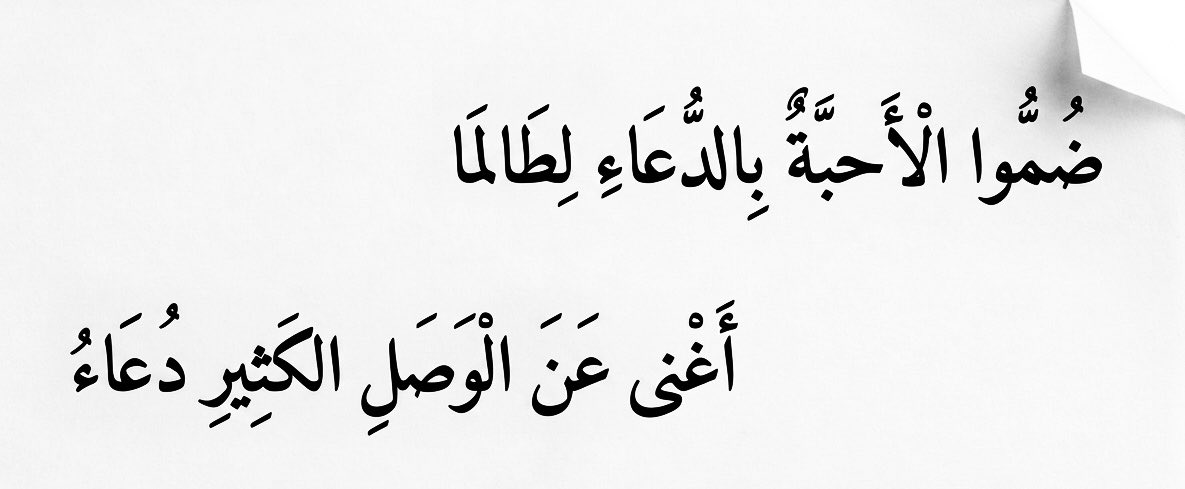 ضُمُّوا الْأَحبَّةٌ بِالدُّعَاءِ لِطَالَمَا
أَغْنى عَنَ الْوَصَلِ الكَثِيرِ دُعَاءُ